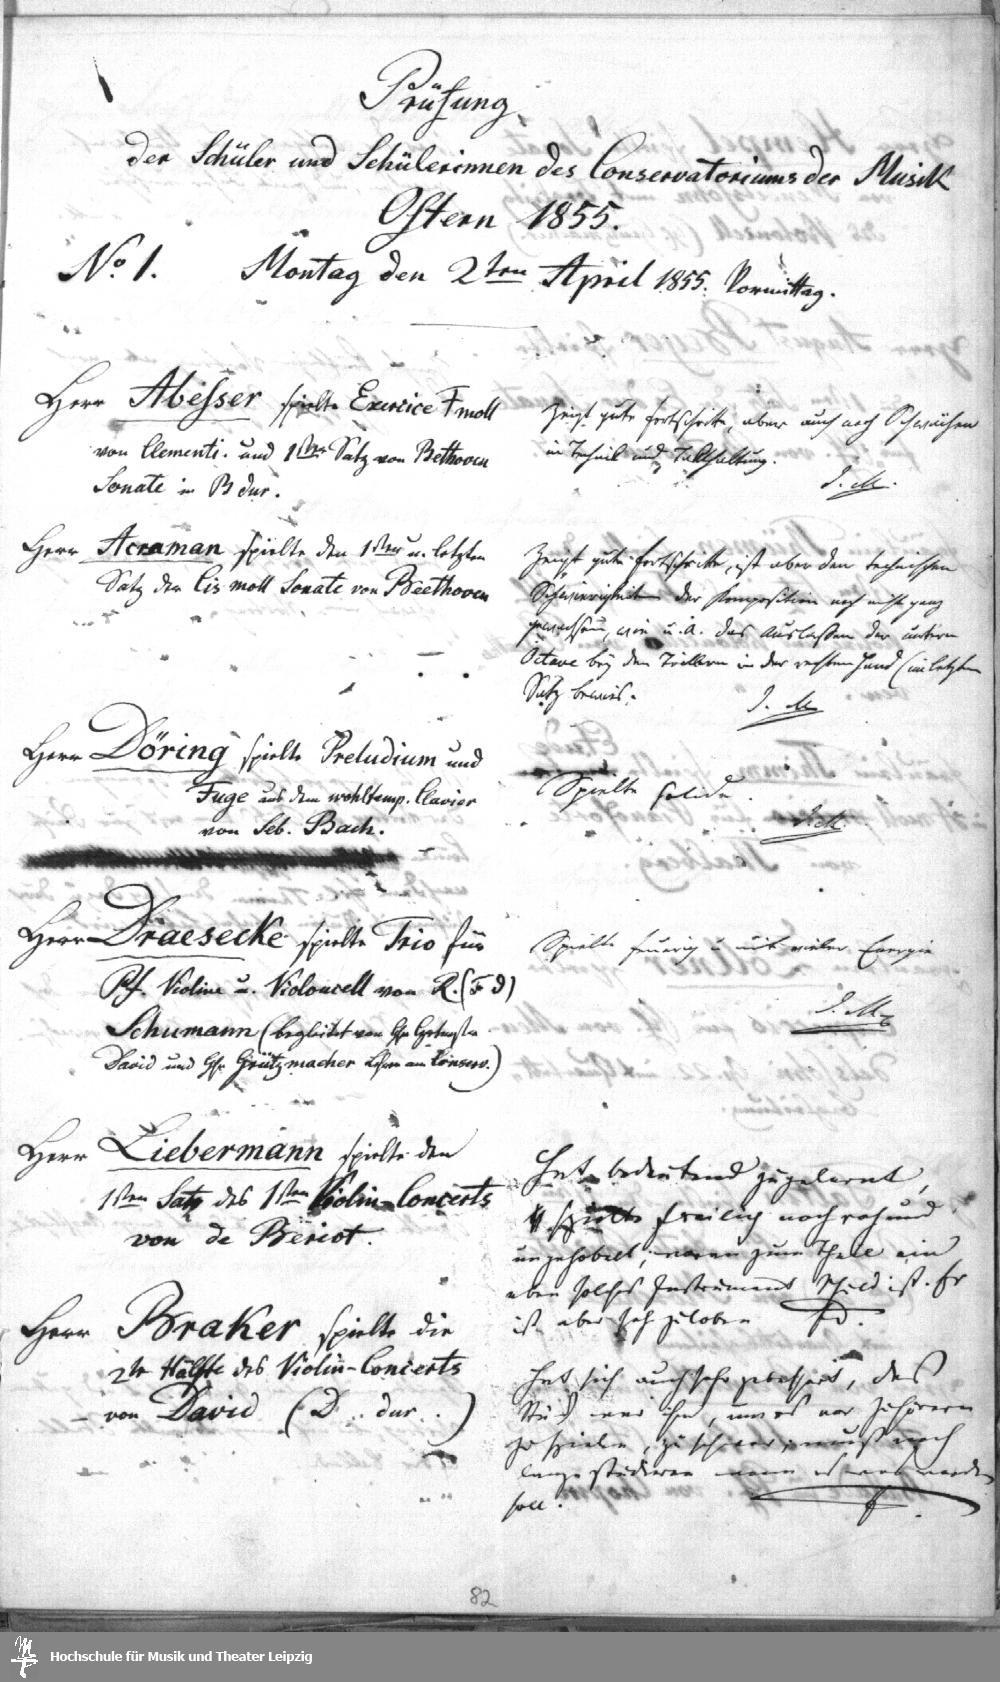 Prüfung
der Schüler und Schülerinnen des Conservatoriums der Musik
Ostern 1855.
No. 1. Montag den 2ten April 1855. Vormittag.
Herr Abesser spielte Exercice F moll
von Clementi. und 1ster Satz von Bethoven
Sonate in B dur.
Zeigt gute Fortschritte, aber auch noch Schwächen
in und Takthaltung.
I. M.
Herr Acraman spielte den 1sten u. letzten
Satz der Cis moll Sonate von Beethoven
Zeigt gute Fortschritte, ist aber den technischen
Schwierigkeiten der Komposition noch nicht ganz
gewachsen, wie u. A. das Auslaßen der untern
Octave bey den Trillern in der rechten Hand (im letzten
Satz) bewies.
I. M.
Herr Döring spielte Preludium und
Fuge aus dem wohltemp. Clavier
von Seb. Bach.
Spielte solide.
I. M.
Herr Draesecke spielte Trio für
Pf. Violine u. Violoncell von R. (F d)
Schumann (begleitet von Hr.
David und Hr. Grützmacher Lehrer am Conserv.)
Spielte feurig u mit vieler Energie
I. M.
Herr Liebermann spielte den
1sten Satz des 1sten Violin-Concerts
von de Beriot.
Hat bedeutend zugelernt,
spielte freilich noch roh und
ungehobelt, woran zum Theil ein
eben solches Instrument Schuld ist. Er
ist aber sehr zu loben
D.
Herr Braker spielte die
2te Hälfte des Violin-Concerts
von David (D dur.)
Hat sich auch sehr gebessert, das
Stück war ihm, um es vor Zuhörern
zu spielen, zu schwer, muß noch
lange studieren wenn es was werden
soll.
82
Hochschule für Musik und Theater Leipzig